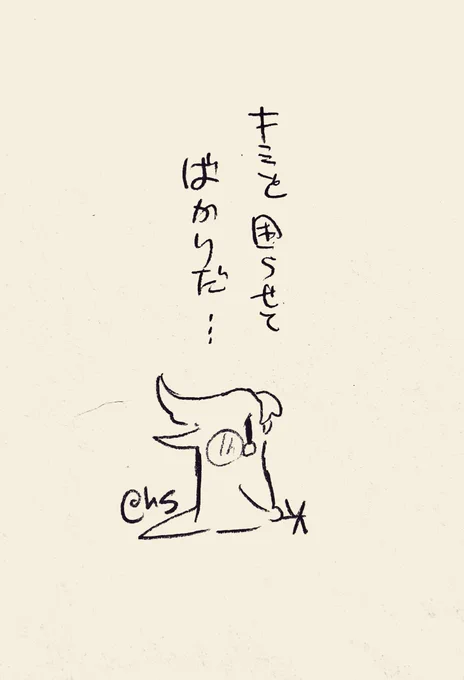 キミを困らせて
ばかりだ…
@hs